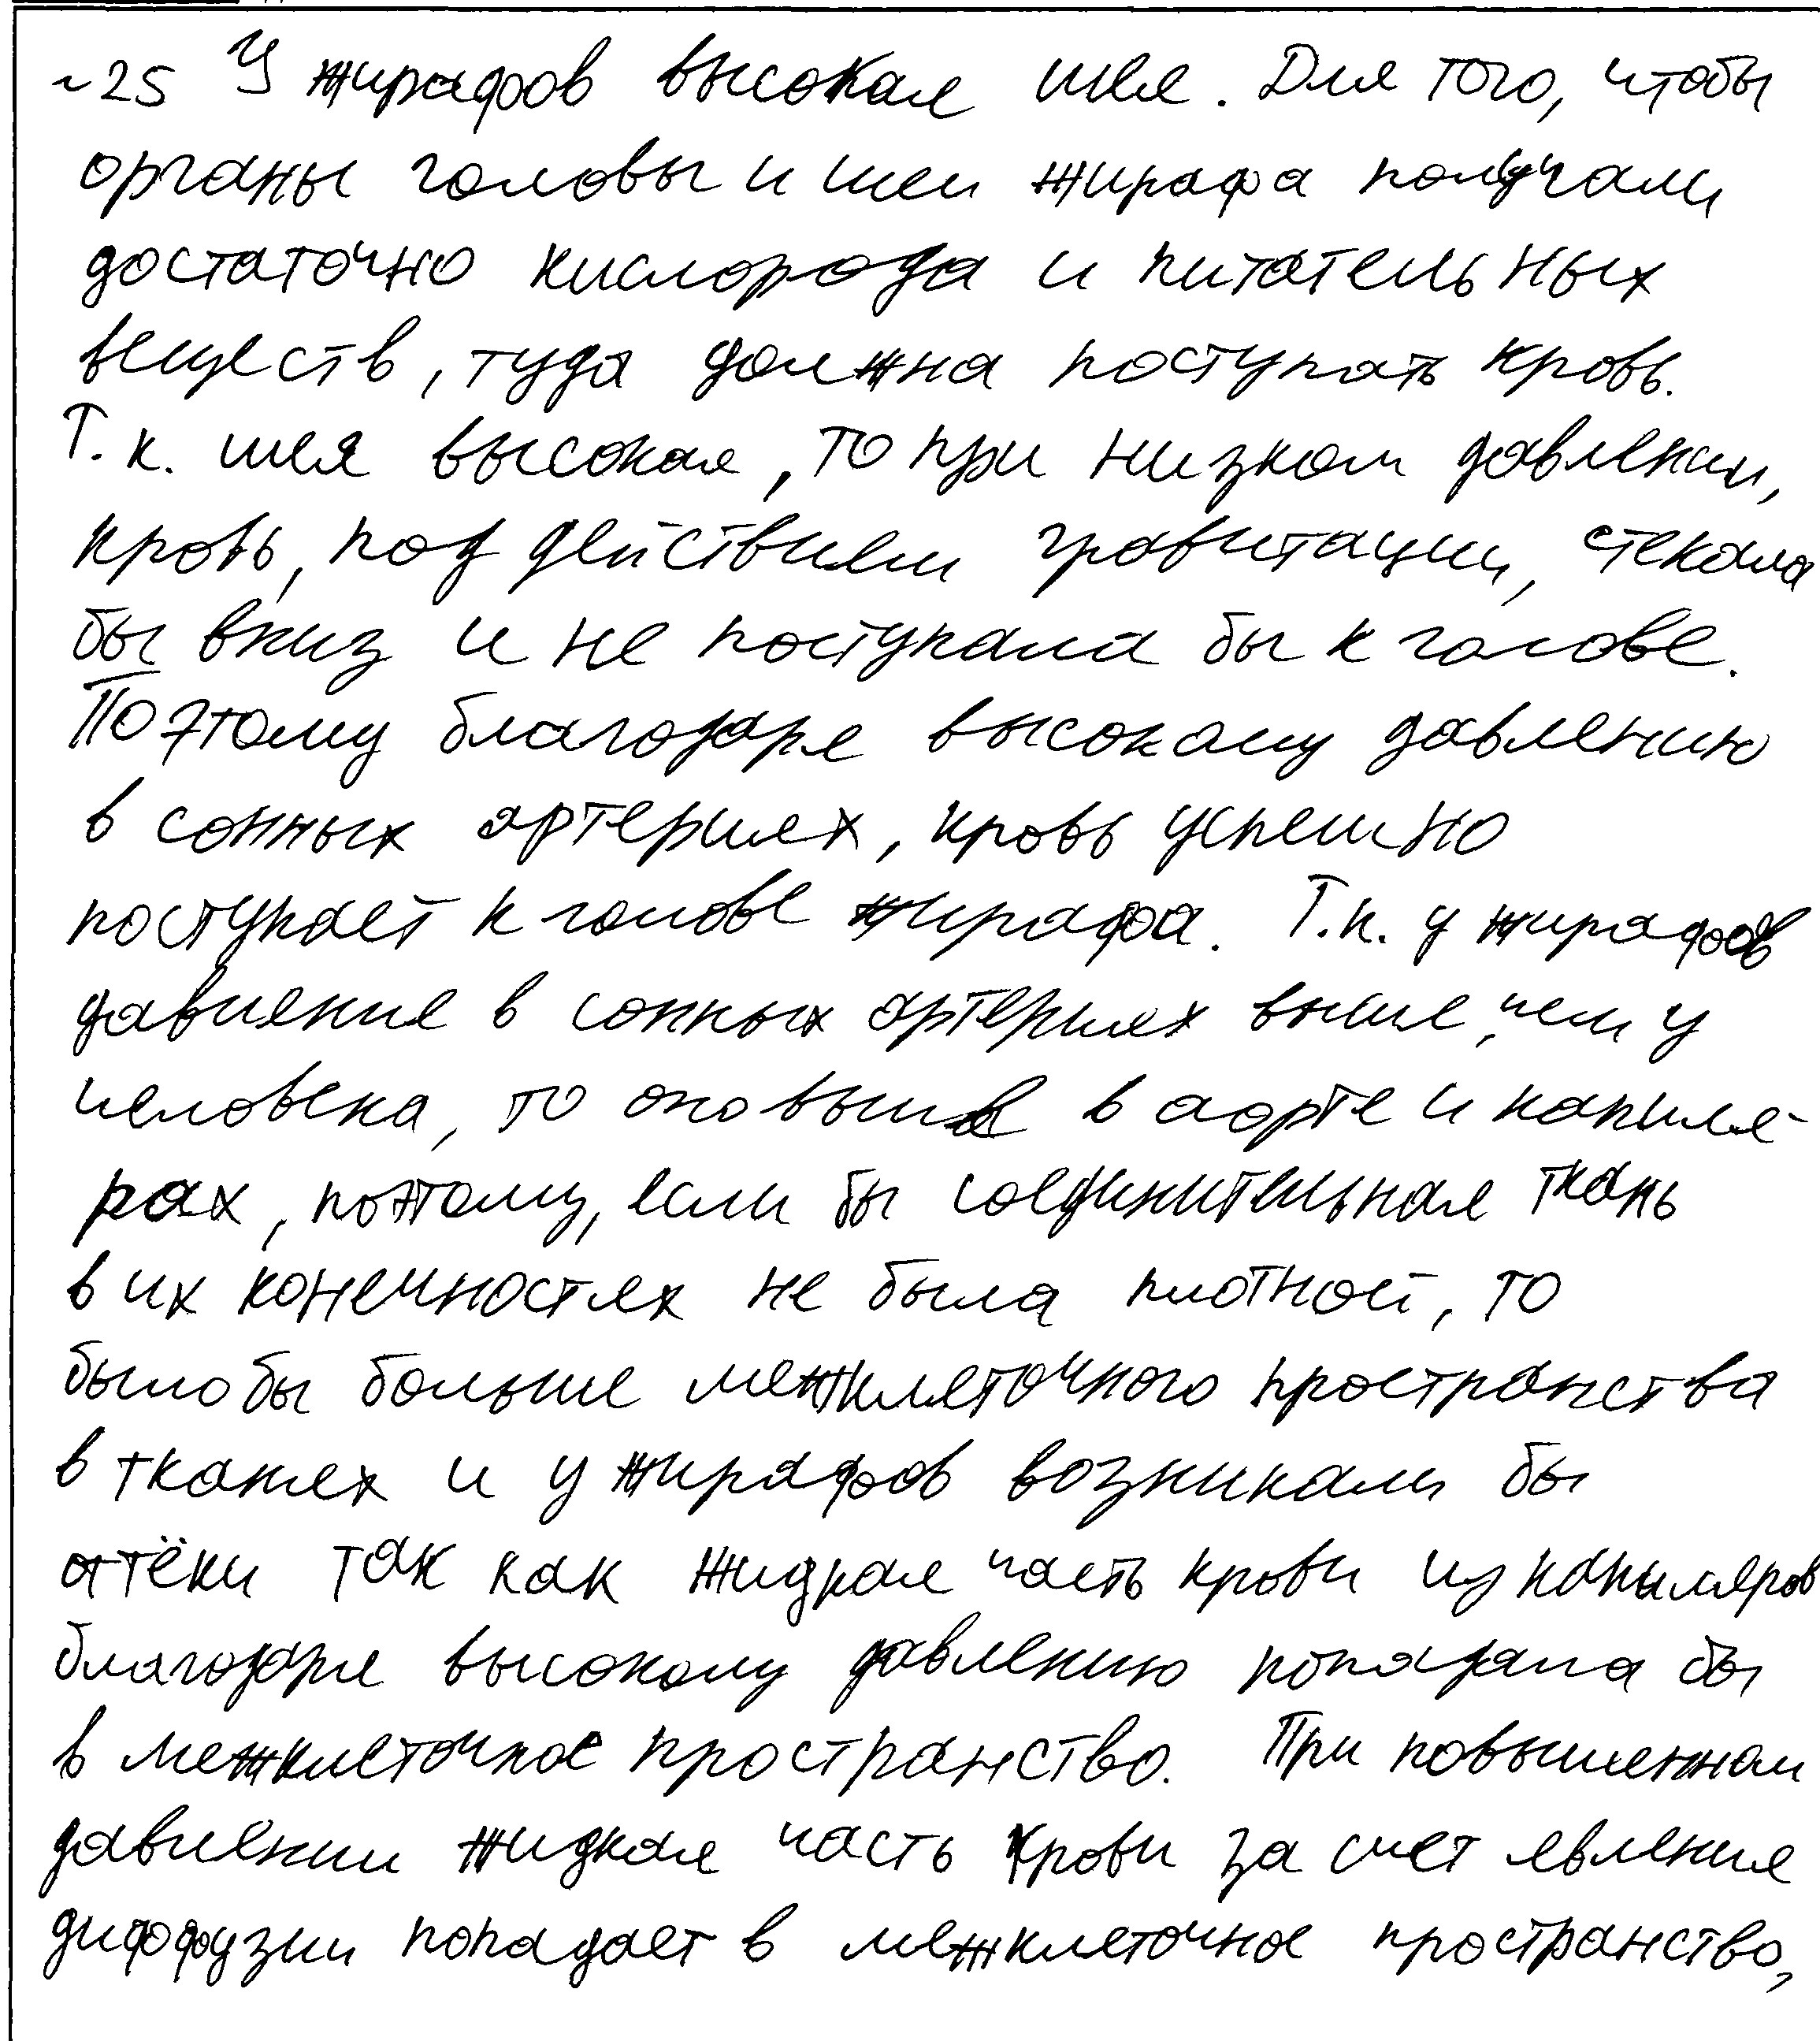 ~25 У жирафов высокая шея. Для того, чтобы
органы головы и шеи жирафа получали
достаточно кислорода и питательных
веществ, туда должна поступать кровь.
Т.к. шея высокая, то при низком давлении,
кровь, под действием гравитации, стекала
бы вниз и не поступала бы к голове.
Поэтому благодаря высокому давлению
в сонных артериях, кровь успешно
поступает к голове жирафа. Т.к. у жирафов
давление в сонных артериях выше, чем у
человека, то оно выше в аорте и капиля-
рах, поэтому, если бы соединительная ткань
в их конечностях не была плотной, то
было бы больше межклеточного пространства
в тканях и у жирафов возникали бы
отёки так как жидкая часть крови из капиляров
благодаря высокому давлению попадала бы
в межклеточное пространство. При повышенном
давлении жидкая часть крови за счет явления
диффузии попадает в межклеточное пространство,